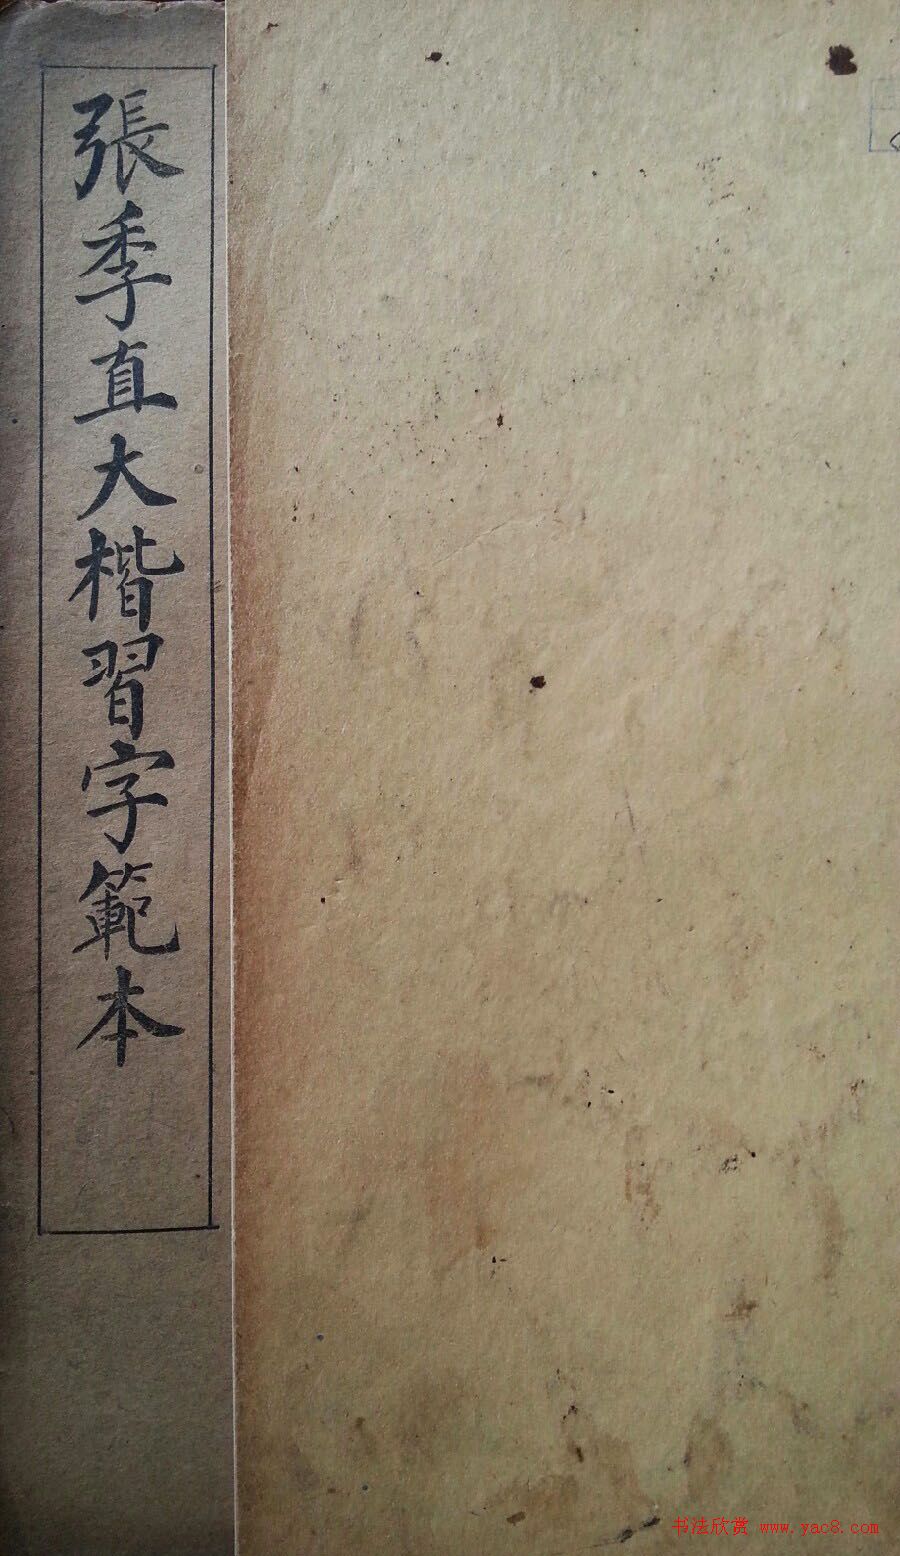 張季直大楷習字範本
书法欣赏 www.yac8.com